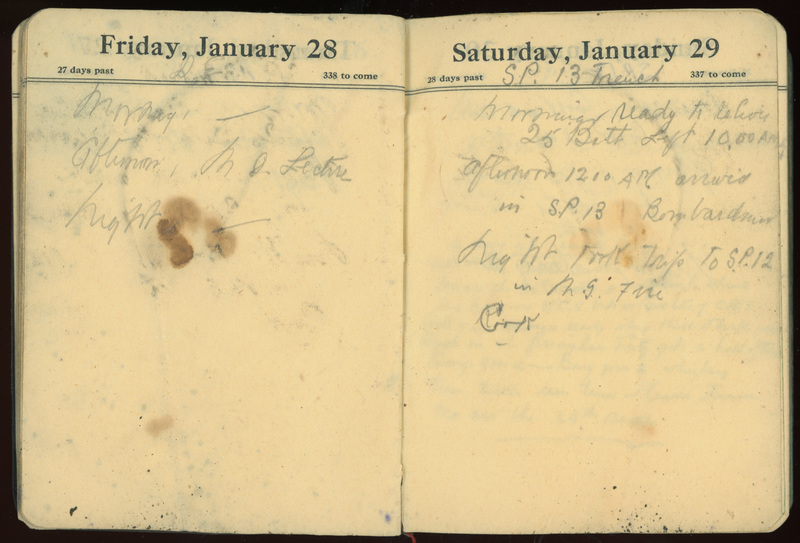 Friday, January 28
27 days past 338 to come
Morning, —
Afternoon, M G Lecture
Night —
Saturday, January 29
28 days past S.P. 13 Trench 337 to come
Morning Ready to relieve
25 Batt Left 10.00 AM
Afternoon 12 10 AM arrived
in S.P. 13 Bombardmen
Night Took Trip To S.P. 12
in M G. Fire
Cook